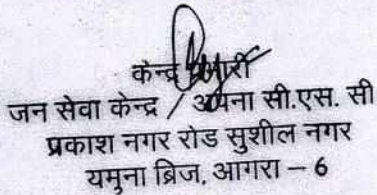 केन्द्र प्रभारी
जन सेवा केन्द्र / अपना सी.एस. सी
प्रकाश नगर रोड सुशील नगर
यमुना ब्रिज, आगरा – 6